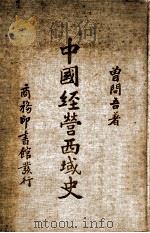 曾問吾著
中國經營西域史
商務印書館發行
www.ertongbook.com